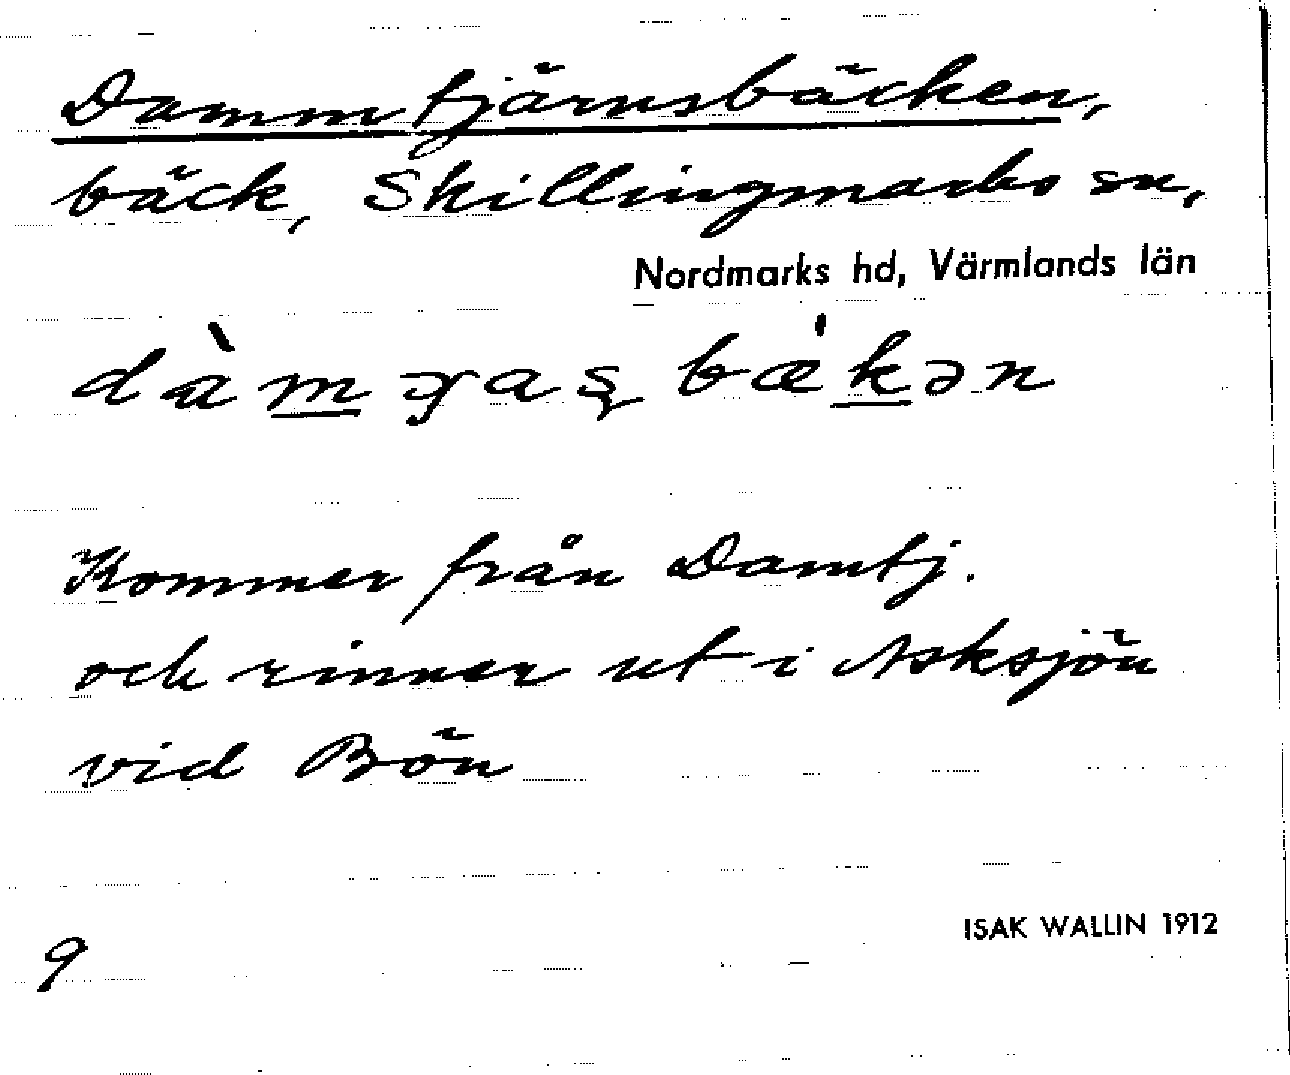 Dammtjärnsbäcken,
bäck, Skillingmarks sn,
Nordmarks hd, Värmlands län
Kommer från Damtj.
och rinner ut i Asksjön
vid Bön
9
ISAK WALLIN 1912